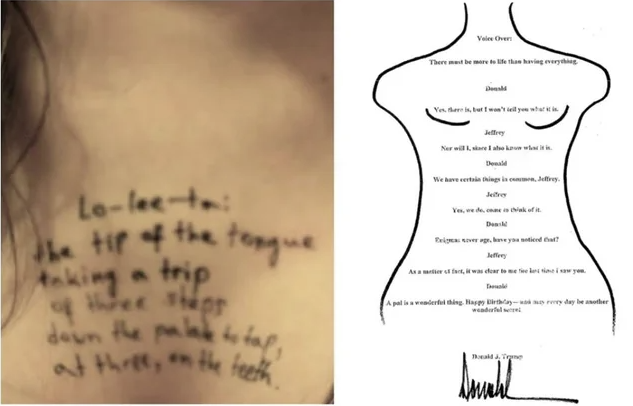 Lo-lee-ta:
the tip of the tongue
taking a trip
of three steps
down the palate to tap,
at three, on the teeth.
Voice Over:
There must be more to life than having everything.
Donald
Yes, there is, but I won't tell you what it is.
Jeffrey
Nor will I, since I also know what it is.
Donald
We have certain things in common, Jeffrey.
Jeffrey
Yes, we do, come to think of it.
Donald
Enigmas never age, have you noticed that?
Jeffrey
As a matter of fact, it was clear to me the last time I saw you.
Donald
A pal is a wonderful thing. Happy Birthday — and may every day be another
wonderful secret.
Donald J. Trump
Donald